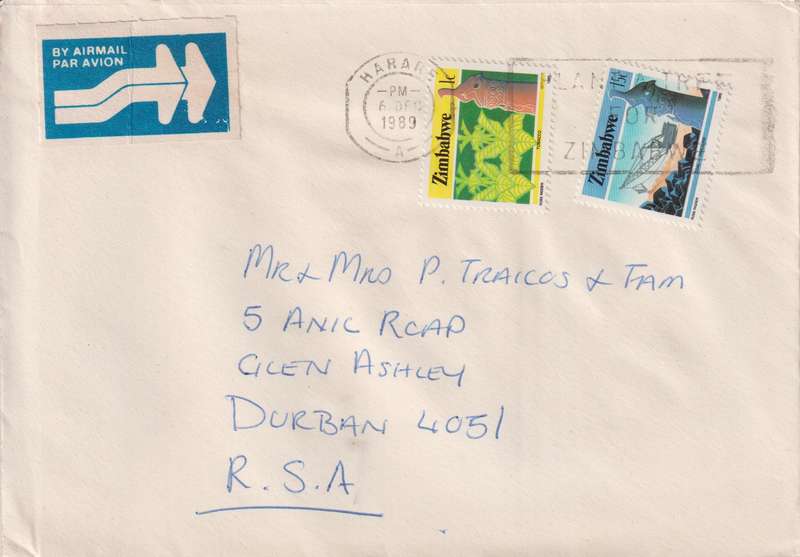 BY AIRMAIL
PAR AVION
HARARE
-PM-
6 DEC
1989
A
1c
Zimbabwe
TOBACCO
15c
Zimbabwe
PLANT A TREE
FOR
ZIMBABWE
MR & MRS P. TRAICOS & FAM
5 ANIC ROAD
GLEN ASHLEY
DURBAN 4051
R.S.A